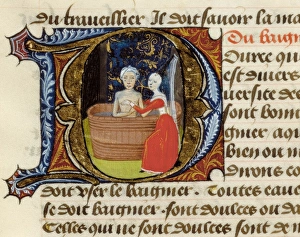 du traueillier Il doit sauoir la ma
Du baign
Duree qua
est diuers
uersite des
sont bonn
gnier aqu
bien ou m
dirons co
doit vser le baignier. Toutes eaue
se doit baignier. sont doulces ou da
Celles qui ne sont doulces sont de m